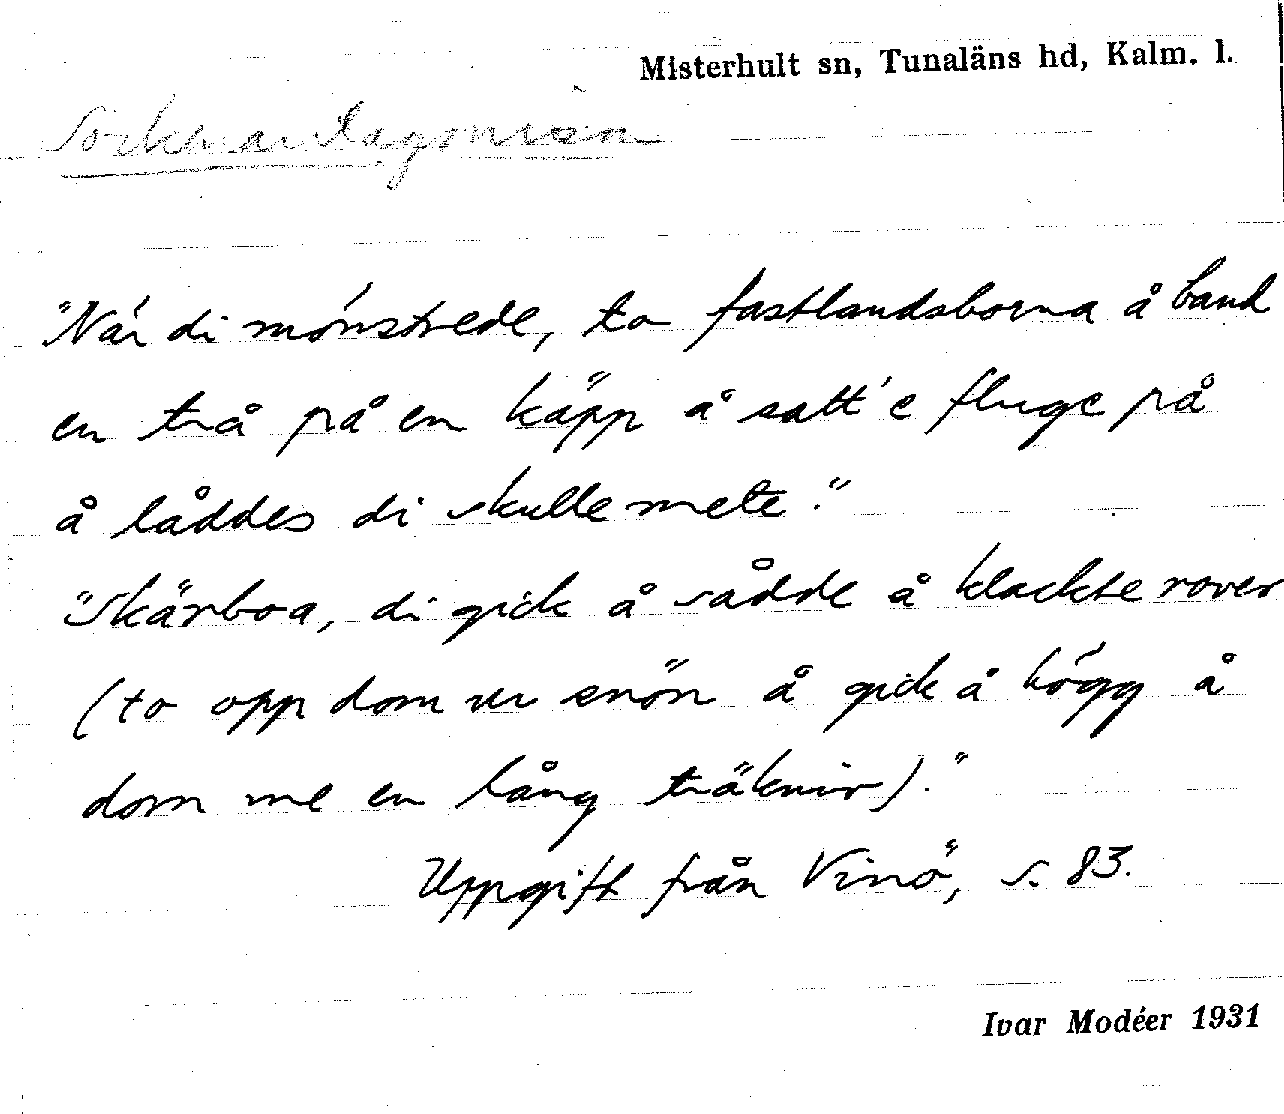 Misterhult sn, Tunaläns hd, Kalm. l.
Sockenantagonism
"När di mönstrede, to fastlandsborna å band
en trå på en käpp å satt'e fluge på
å låddes di skulle mete."
"Skärboa, di gick å sådde å klackte rover
(to opp dom ur snön å gick å högg å
dom me en lång träkniv)."
Uppgift från Vinö, s. 83.
Ivar Modéer 1931